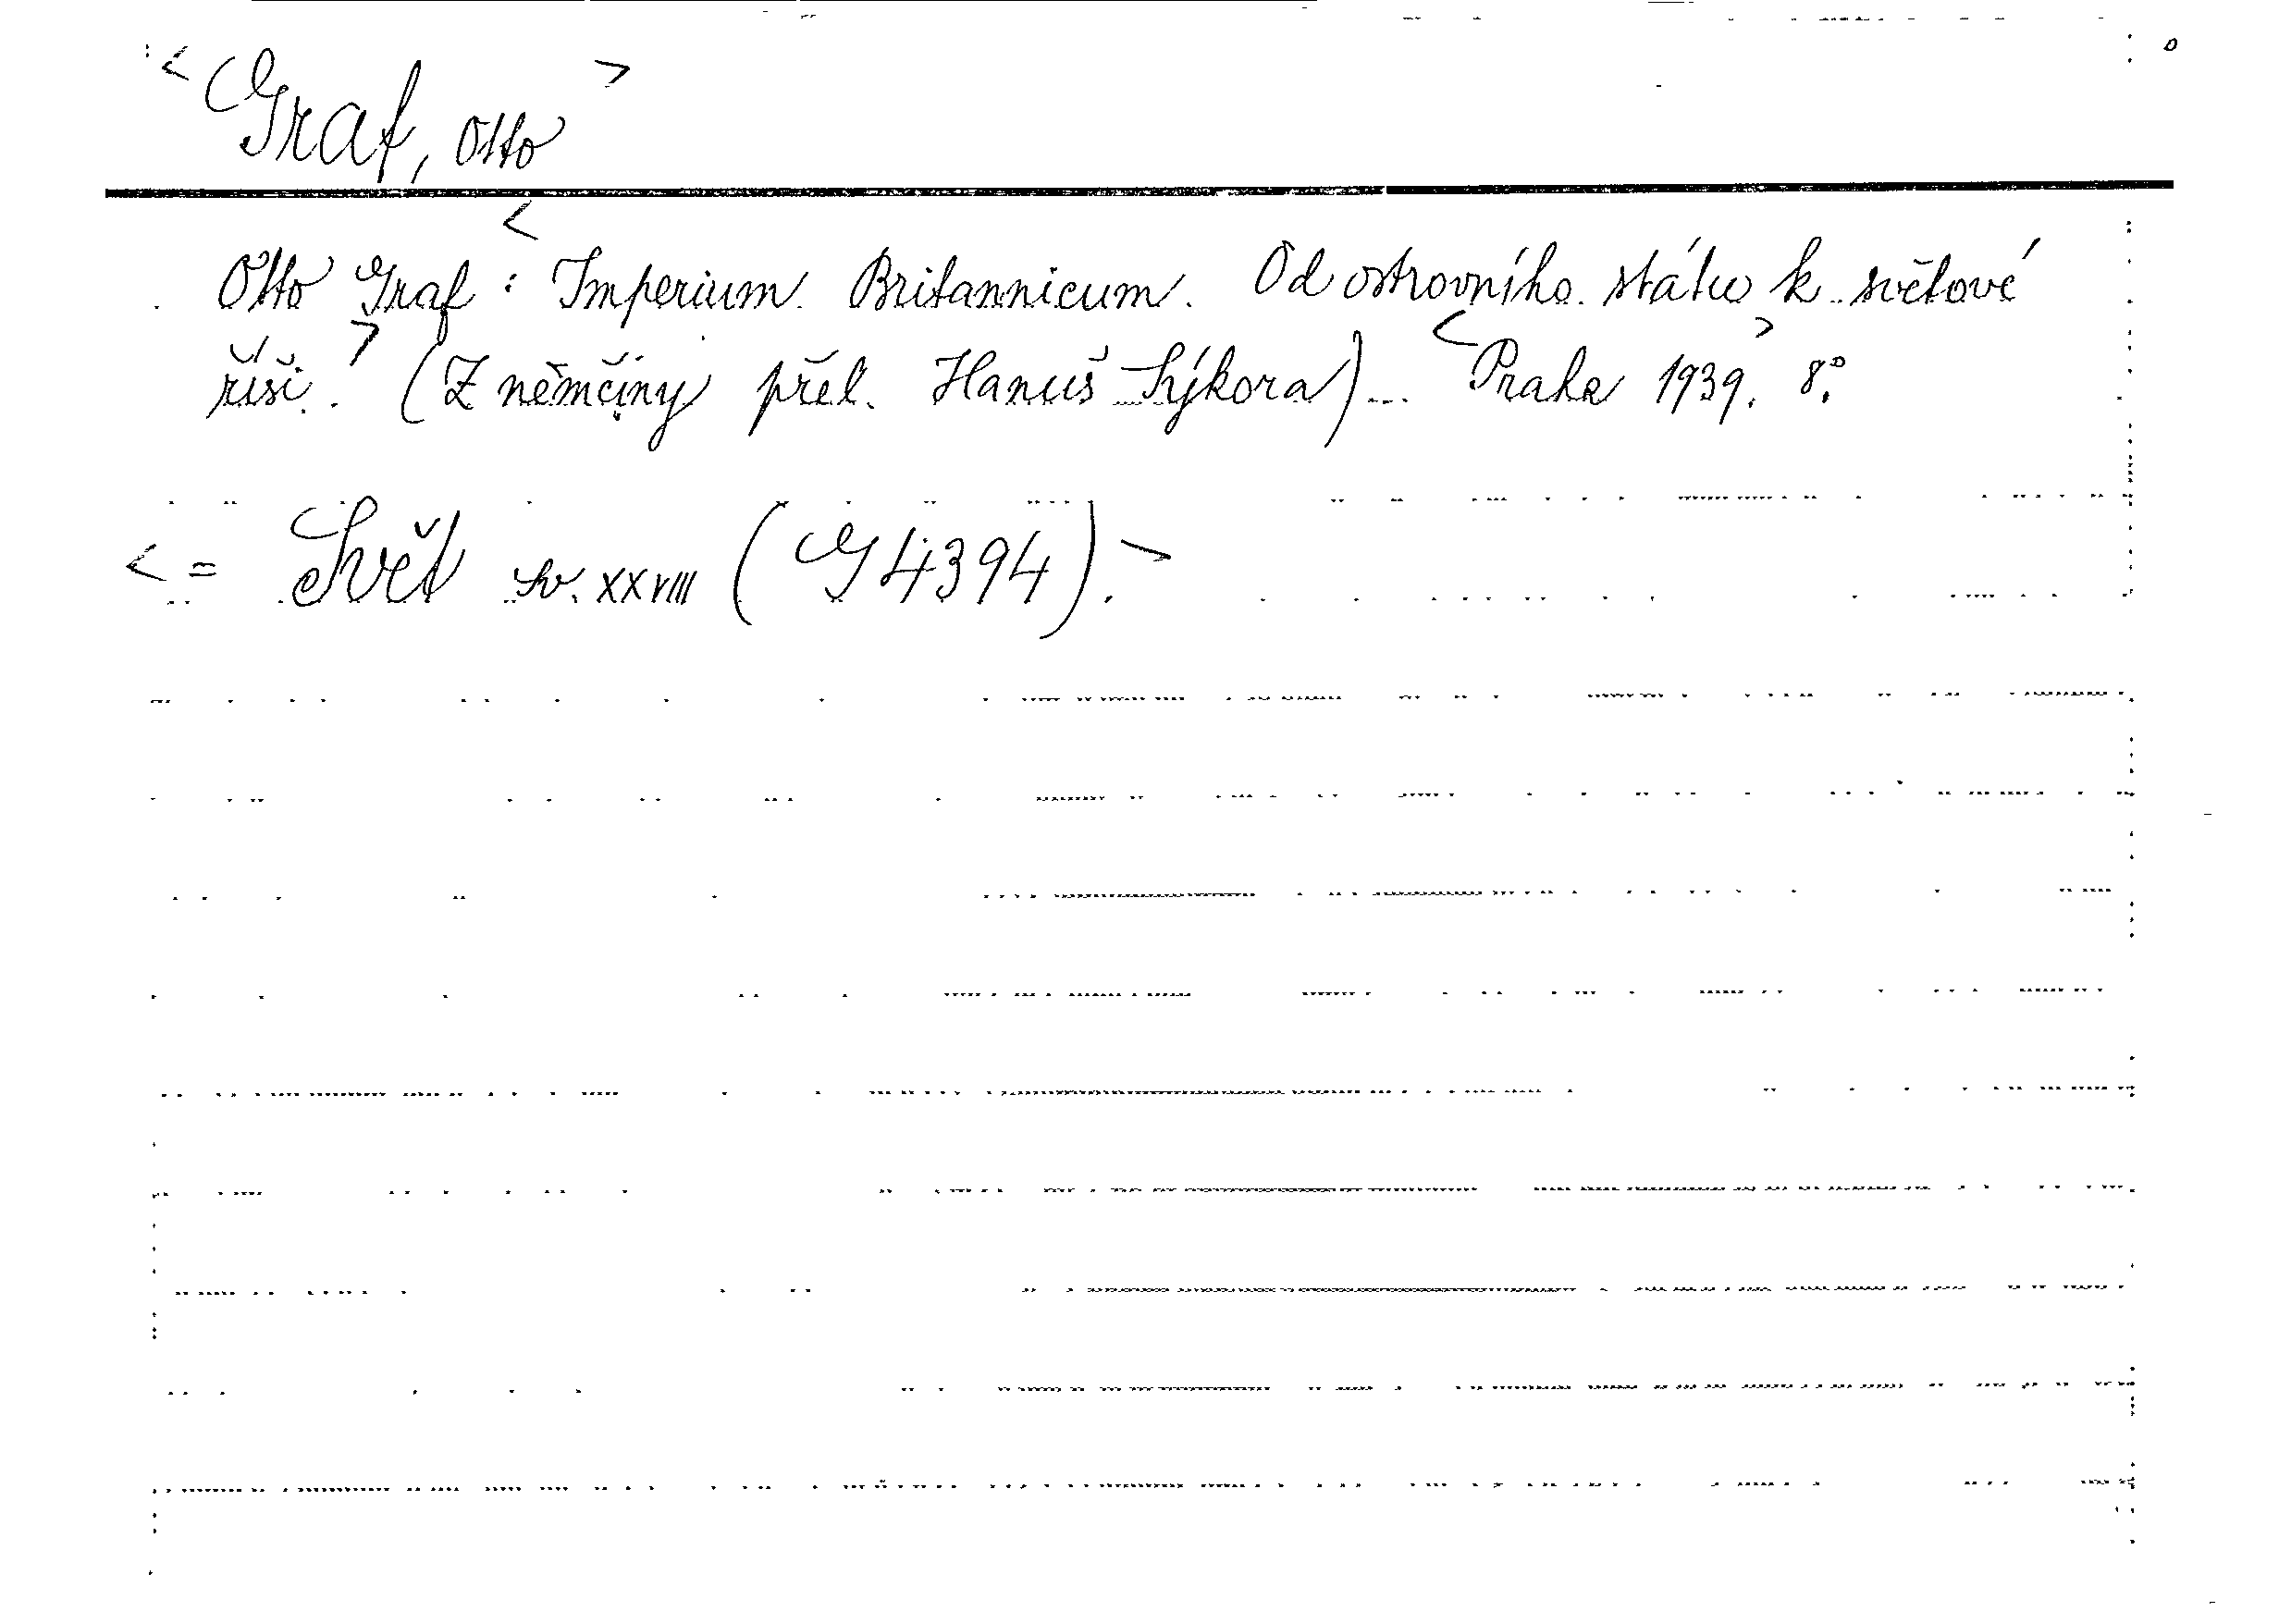 <Graf, Otto>
Otto Graf: <Imperium Britannicum. Od ostrovního státu k světové
říši.> (Z němčiny přel. Hanuš Sýkora)... <Praha 1939.> 8°.
<= Svět sv. XXVIII (G 4394).>